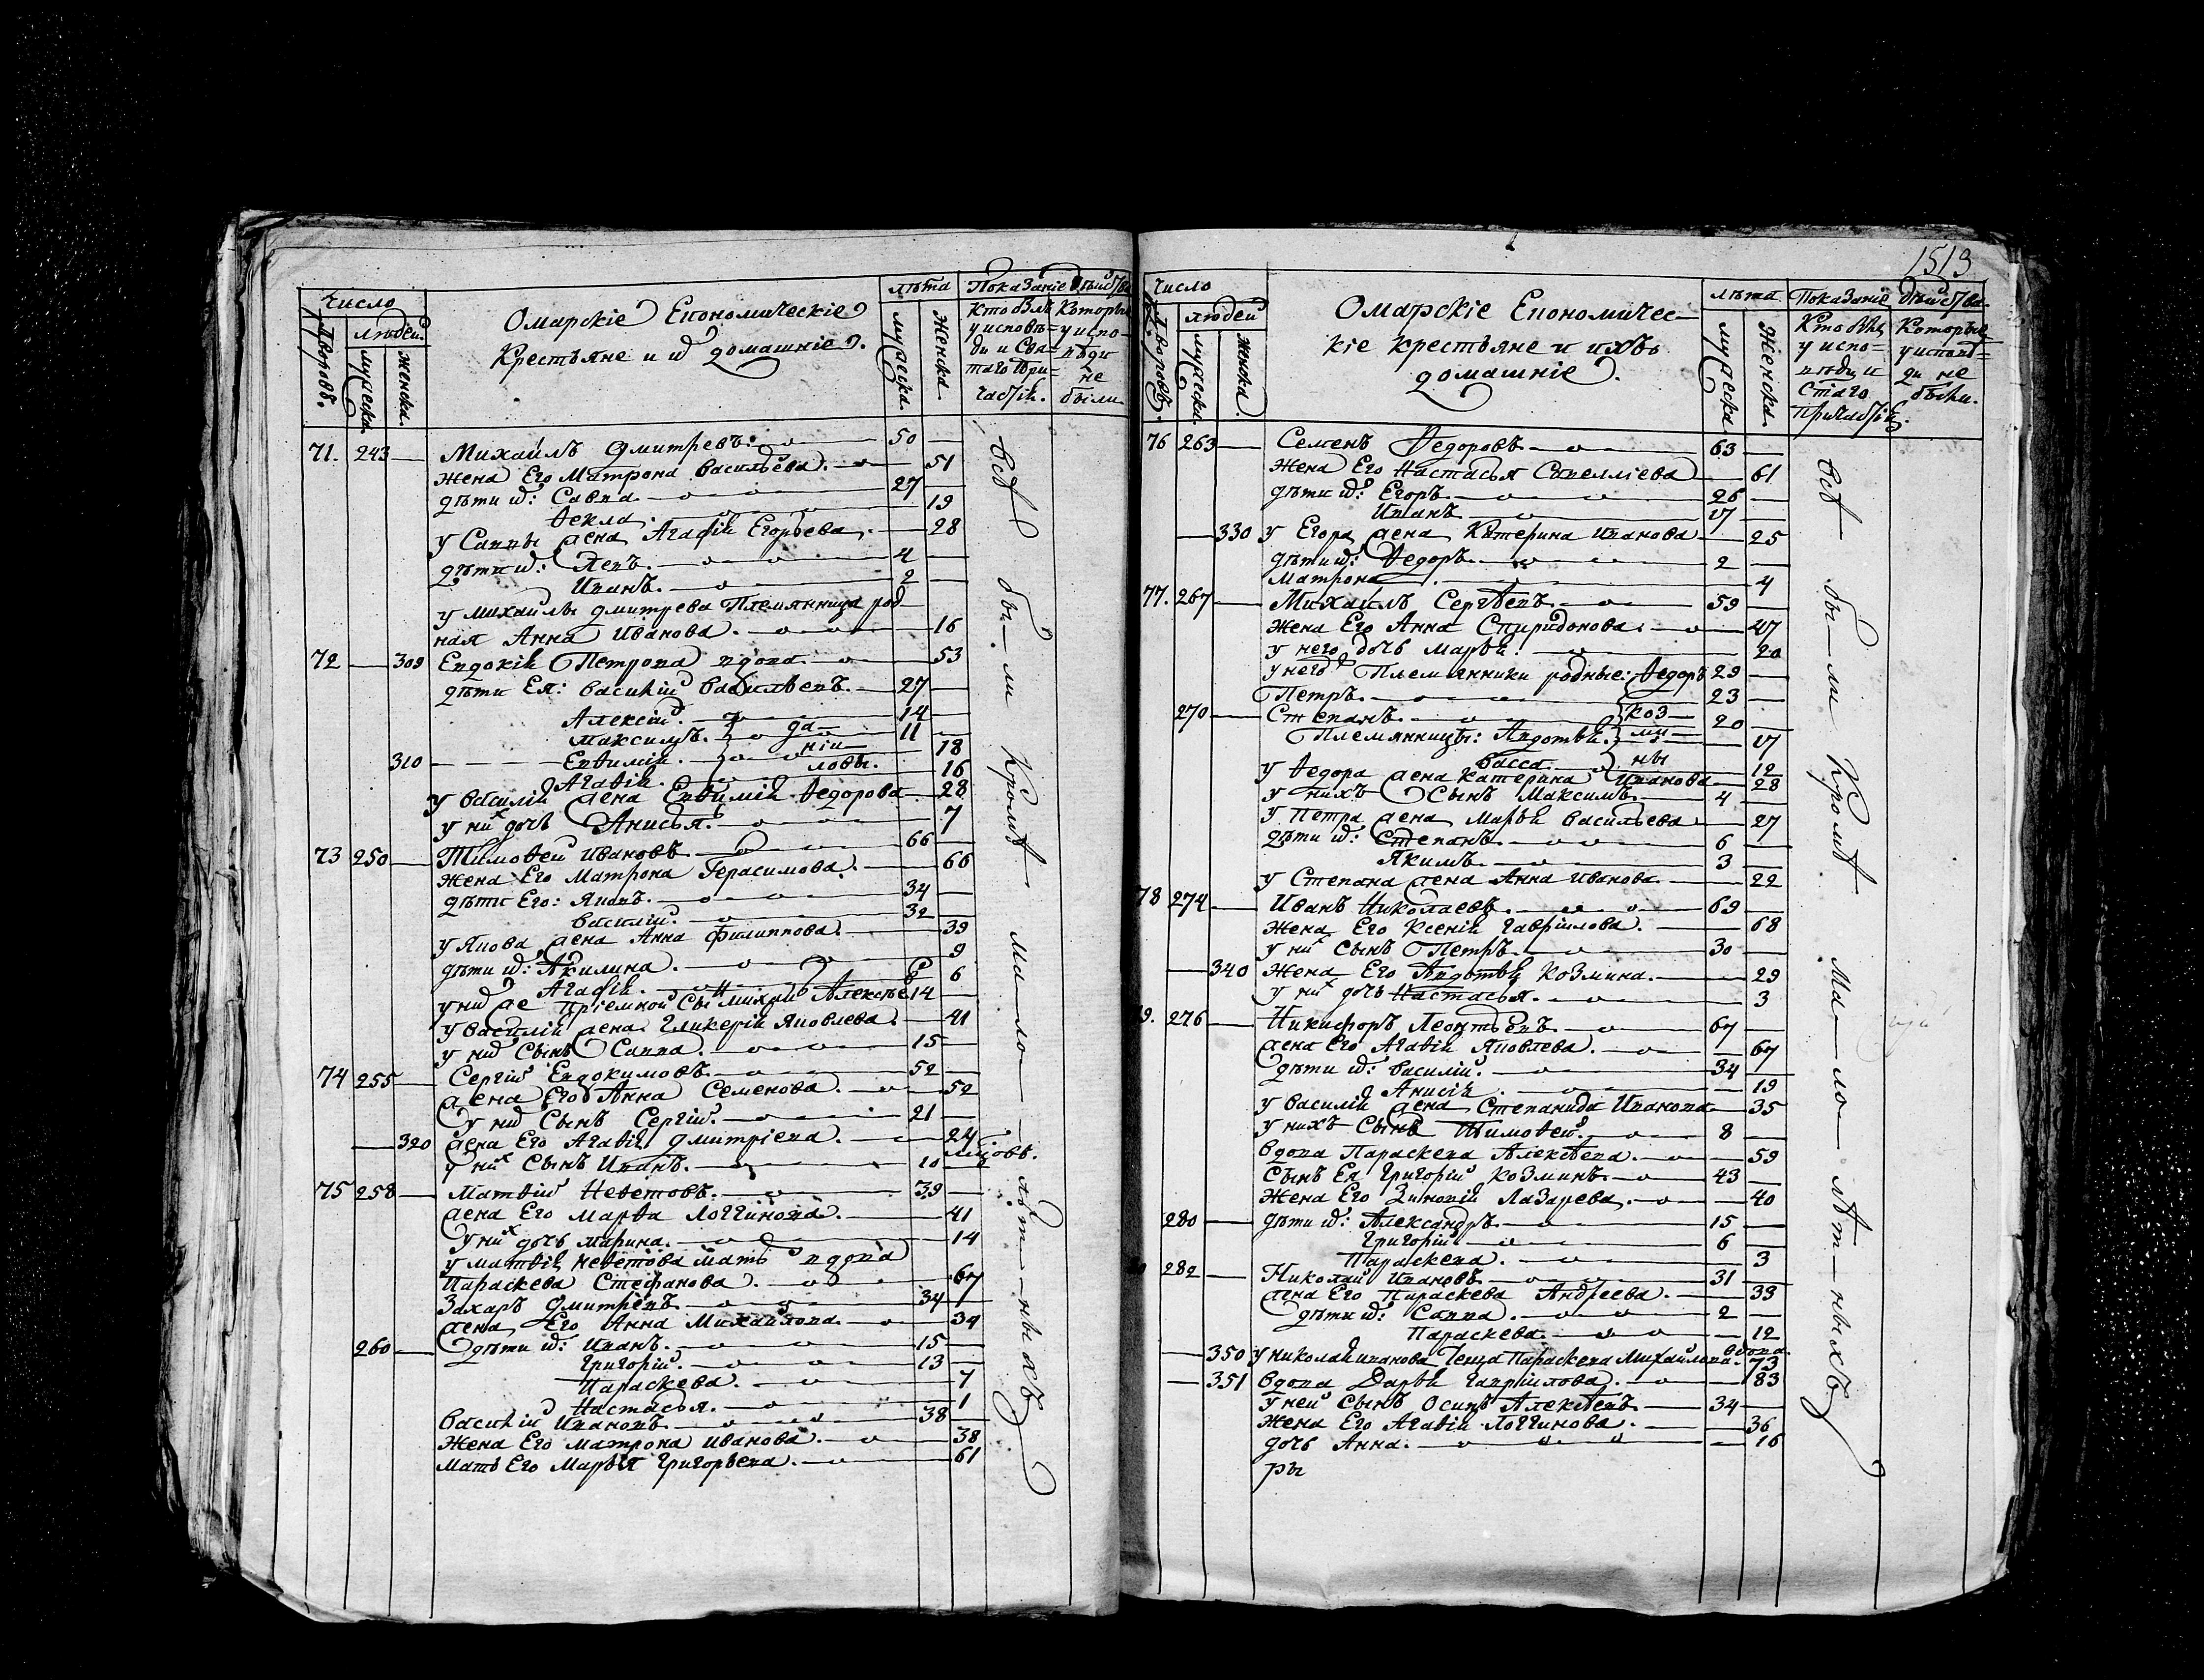 Число
Дворовъ.
людей.
мужеска.
женска.
Омарскіе Економическіе
Крестьяне и их домашніе.
лѣта
мужеска.
Женска.
Показаніе дѣйства
Кто былъ
у исповѣ=
ди и Свя=
таго при=
частія.
Которые
у испо=
вѣди
не
были
71. 243 Михаилъ Дмитревъ. 50
жена Его Матрона Васильева. 51
дѣти их: Савва 27
Ѳекла. 19
у Саввы жена Агафія Егорьева. 28
дѣти их: Левъ. 4
Иванъ. 2
у михаилы дмитрева Племянница род
ная Анна Иванова. 16
72 309 Евдокія Петрова вдова. 53
дѣти Ея: василій Васильевъ. 27
Алексій. 14
максимъ. да 11
310 Евѳимія. ніи 18
Агаѳія. ловы. 16
у василія жена Евѳимія Ѳедорова 28
у них дочь Анисья. 7
73 250 Тимоѳей Ивановъ. 66
жена Его Матрона Герасимова. 66
дѣти Его: Яковъ. 34
василій. 32
у Якова жена Анна Филиппова. 39
дѣти их: Акилина. 9
Агафія. 6
у них же пріемной Сынъ Михаил Алексѣев 14
у василія жена Гликерія Яковлева. 41
у них Сынъ Савва. 15
74 255 Сергій Евдокимовъ. 52
жена Его Анна Семенова. 52
у них Сынъ Сергій. 21
320 жена Его Агаѳія Дмитріева. 24
у них Сынъ Иванъ. 10 мцовъ.
75 258 Матвій Неѳетовъ. 39
жена Его Марѳа Логгинова. 41
у них дочь марина. 14
у матвія неѳетова мать вдова
Параскева Стефанова. 67
Захаръ Дмитріевъ. 34
жена Его Анна Михайлова. 34
260 дѣти их: Иванъ. 15
Григорій. 13
Параскева. 7
Настасья. 1
Василій Ивановъ. 38
жена Его матрона иванова. 38
мать Его Марья Григорьева. 61
всѣ бы-ли Кромѣ ма-ло-лѣт-ныхъ.
1513
Число
Дворовъ.
людей
мужеска.
женска.
Омарскіе Економичес-
кіе крестьяне и ихъ
домашніе.
лѣта
мужеска.
Женска.
Показаніе дѣйства.
Кто былъ
у испо=
вѣди и
Стаго
причастія.
Которые
у исповѣ=
ди не
были.
76 263 Семенъ Ѳедоровъ 63
жена Его Настасья Савелліева 61
дѣти их: Егоръ. 26
Иванъ 17
330 у Егора жена Катерина Иванова 25
дѣти их: Ѳедоръ. 2
матрона. 4
77. 267 Михаилъ Сергѣевъ. 59
жена Его Анна Спиридонова. 47
у него дочь марья. 20
у него Племянники родные: Ѳедоръ 29
Петръ. 23
270 Степанъ. коз 20
Племянницы: Авдотья. ми 17
Васса. ны 12
у Ѳедора жена катерина Иванова 28
у нихъ Сынъ Максимъ 4
у Петра жена Марья Васильева 27
дѣти их: Степанъ. 6
Якимъ. 3
у Степана жена Анна Иванова. 22
78 274 Иванъ Николаевъ. 69
жена Его Ксенія Гавріилова. 68
у них сынъ Петръ. 30
340 жена Его Авдотья Козмина. 29
у них дочь Настасья. 3
9. 276 Никифоръ Леонтьевъ. 67
жена Его Агаѳія Яковлева. 67
дѣти их: Василій. 34
Анисія. 19
у Василія жена Степанида Иванова 35
у нихъ Сынъ Тимоѳей. 8
вдова Параскева Алексѣева. 59
Сынъ Ея Григорій Козминъ 43
жена Его Зиновія Лазарева. 40
280 дѣти их: Александръ. 15
Григорій. 6
Параскева. 3
282 Николай Ивановъ. 31
жена Его Параскева Андреева. 33
дѣти их: Савва. 2
Параскева. 12
350 у николая иванова Теща Параскева Михайлова. вдова 73
351 вдова Дарья Гавріилова. 83
у ней Сынъ Осипъ Алексѣевъ 34
жена Его Агаѳія Логгинова. 36
дочь Анна. 16
ры
всѣ бы-ли Кромѣ ма-ло-лѣт-ныхъ